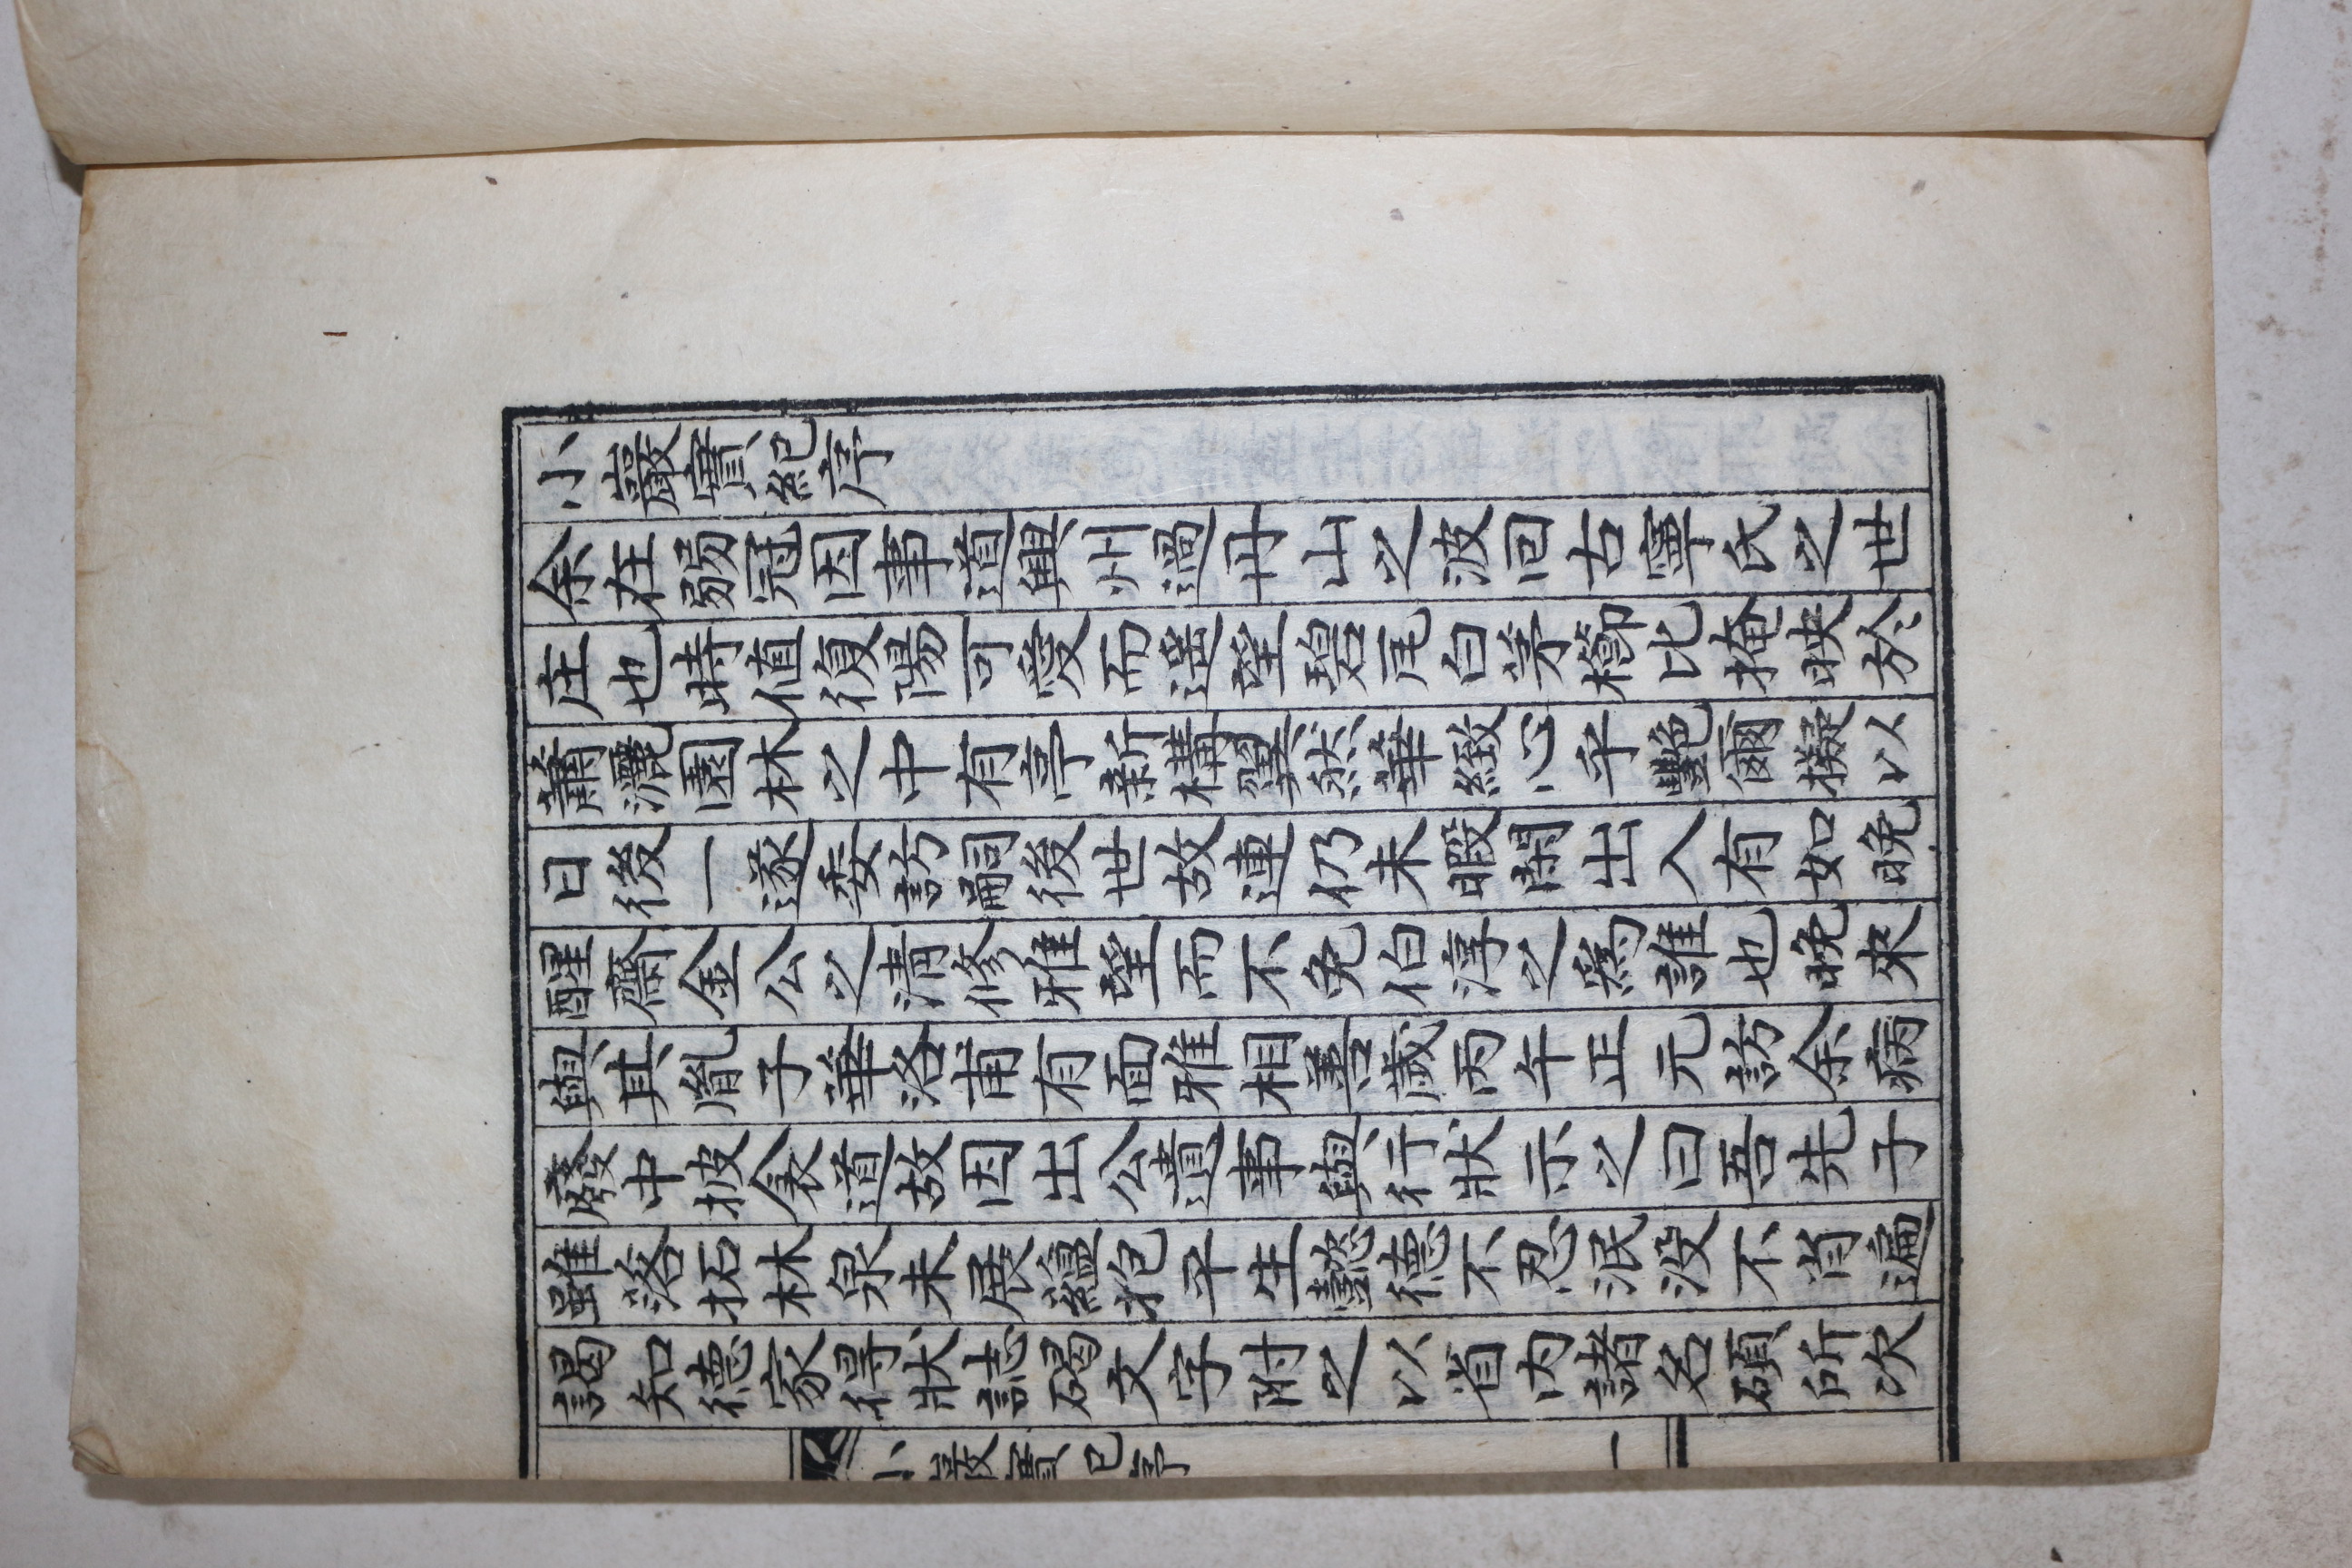 小巖實紀序
余在弱冠因事道興州過丹山之波回古寧氏之世
庄也時値復陽可愛而遙望碧瓦白茅櫛比掩映於
蕭灑園林之中有亭新構翼然華緻心乎艷爾擬以
日後一遂委訪嗣後世故連仍未暇閑出入有如晩
醒齋金公之淸修雅望而不免伯淳之爲誰也晩來
與其胤子華洛甫有面雅相善歲丙午正元訪余病
廢中披衾道故因出公遺事與行狀示之曰吾先子
雖落拓林泉未展蘊抱平生懿德不忍泯没不肖遍
謁知德家得狀誌碣文字附之以省内諸名碩所次
小巖實紀序
一